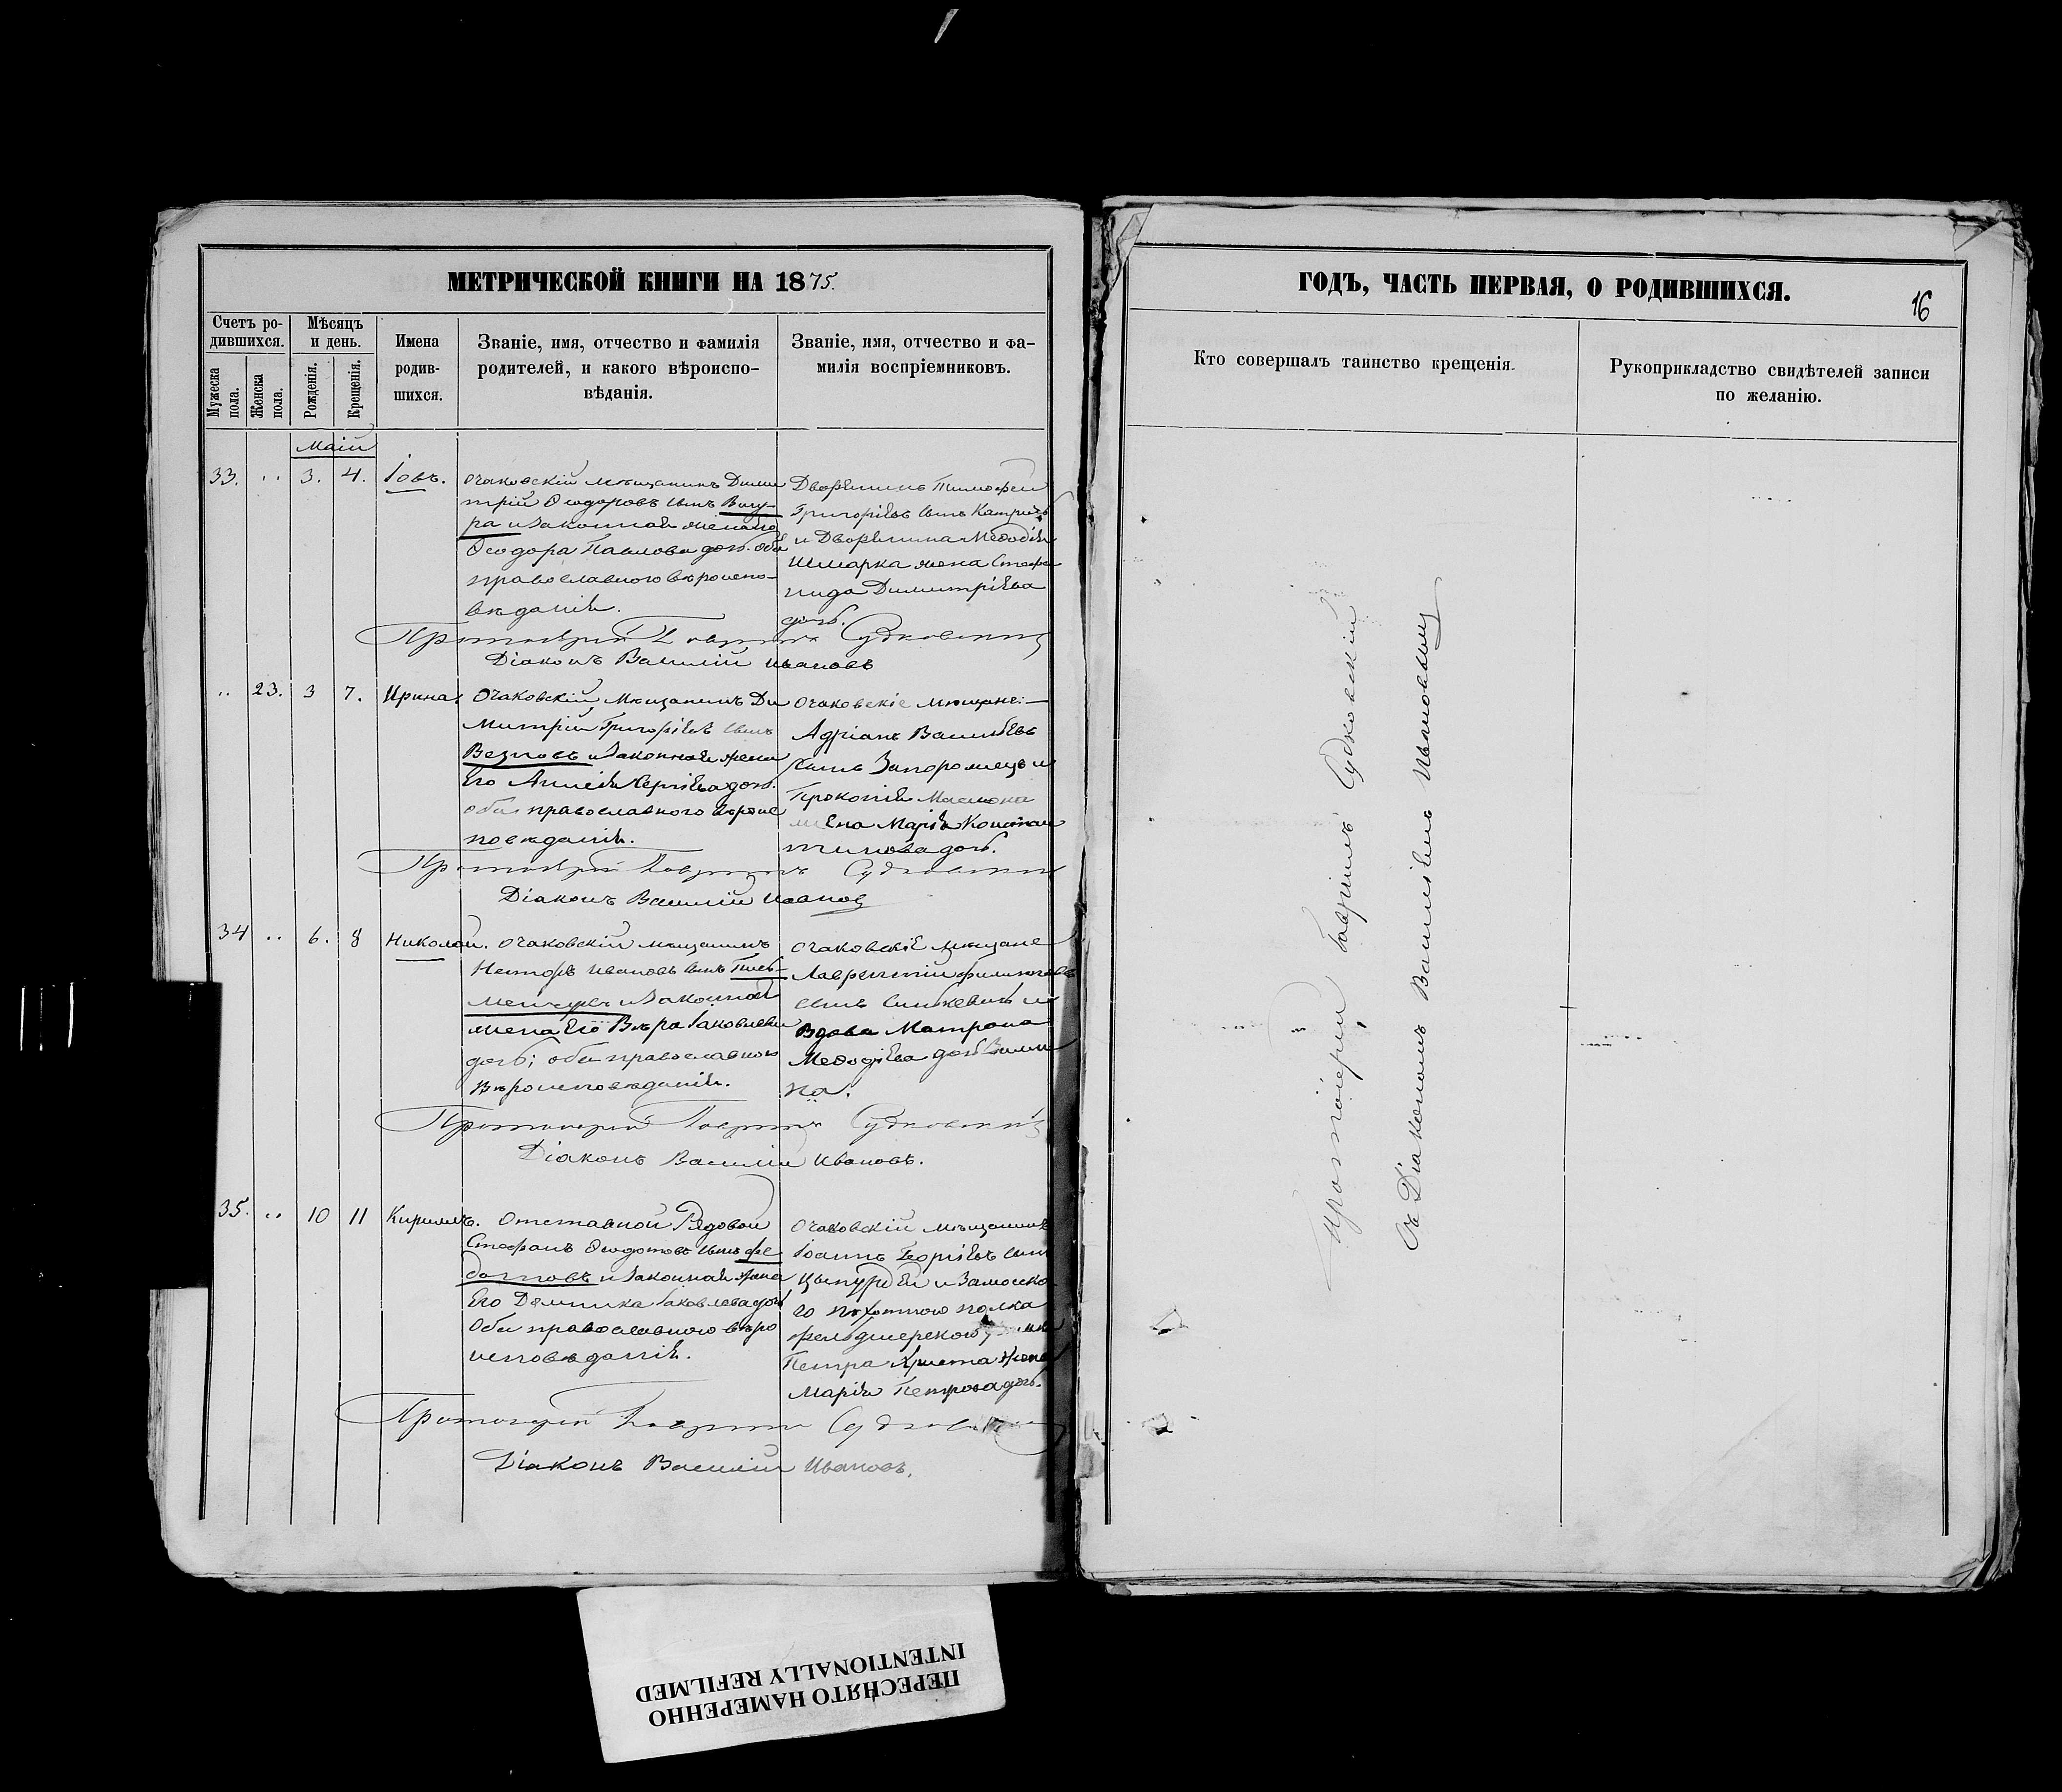 МЕТРИЧЕСКОЙ КНИГИ НА 1875.
Счетъ ро-
дившихся.
Мужеска
пола.
Женска
пола.
Мѣсяцъ
и день.
Рожденія.
Крещенія.
Имена
родив-
шихся.
Званіе, имя, отчество и фамилія
родителей, и какого вѣроиспо-
вѣданія.
Званіе, имя, отчество и фа-
милія воспріемниковъ.
Маій
33. .. 3. 4. Іовъ.
Очаковскій мѣщанинъ Дими
трій Ѳеодоровъ сынъ
ра и законная жена его
Ѳеодора Павлова дочь. оба
православнаго вѣроиспо-
вѣданія.
Дворянинъ Тимофей
Григоріевъ сынъ
и Дворянина Меѳодія
Шмарка жена Стефа
нида Димитріева
дочь.
Протоіерей Гавріилъ Судковскій
Діаконъ Василій Ивановъ
.. 23. 3 7. Ирина.
Очаковскій Мѣщанинъ Ди
митрій Григоріевъ сынъ
и законная жена
Его Сергіева дочь.
оба православнаго вѣроис
повѣданія.
Очаковскіе мѣщане:
Адріанъ Васильевъ
сынъ Запорожецъ и
Прокопія
жена Марія Констан
тинова дочь.
Протоіерей Гавріилъ Судковскій
Діаконъ Василій Ивановъ
34 .. 6. 8 Николай.
Очаковскій мѣщанинъ
Несторъ Ивановъ сынъ Пись-
и законная
жена Его Вѣра Іаковлева
дочь; оба православнаго
Вѣроисповѣданія.
Очаковскіе мѣщане
Лаврентій
сынъ и
Вдова Матрона
Меѳодіева дочь
на.
Протоіерей Гавріилъ Судковскій
Діаконъ Василій Ивановъ.
35. .. 10 11 Кириллъ.
Отставной Рядовой
Стефанъ Ѳеодотовъ сынъ Фе
дотовъ и законная жена
Его Домника Іаковлева дочь
Оба православнаго вѣро
исповѣданія.
Очаковскій мѣщанинъ
Іоаннъ Георгіевъ сынъ
и Замоско
го пѣхотнаго полка
фельдшерскаго
Петра Христа жена
Марія Петрова дочь.
Протоіерей Гавріилъ Судковскій
Діаконъ Василій Ивановъ.
ГОДЪ, ЧАСТЬ ПЕРВАЯ, О РОДИВШИХСЯ.
16
Кто совершалъ таинство крещенія.
Рукоприкладство свидѣтелей записи
по желанію.
Протоіерей Гавріилъ Судковскій
Съ Діакономъ Василіемъ Ивановымъ
ПЕРЕСНЯТО НАМЕРЕННО
INTENTIONALLY REFILMED